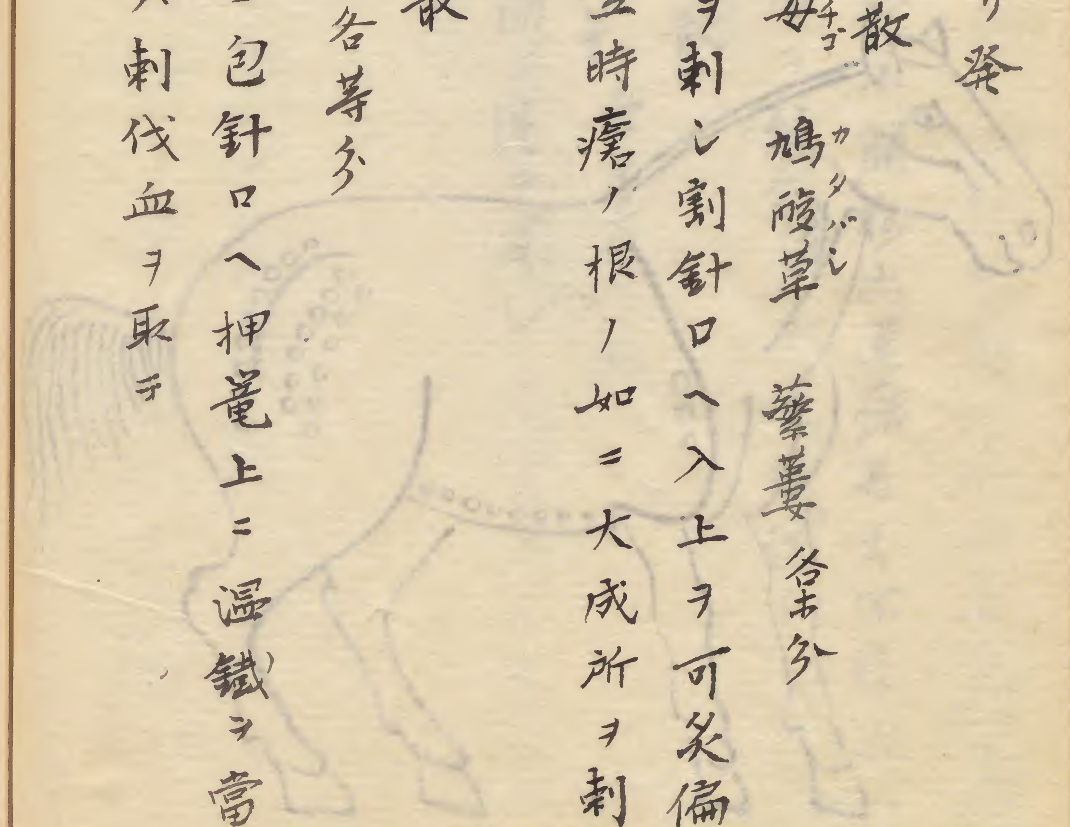 リ発
散
母 チゴ 鳩酸草 カタバシ 蔞 各等分
ヲ刺シ割針口ヘ入上ヲ可炙偏
時瘡ノ根ノ如ニ大成所ヲ刺
散
各等分
包針口ヘ押篭上ニ温鐵ヲ當
刺伐血ヲ取テ